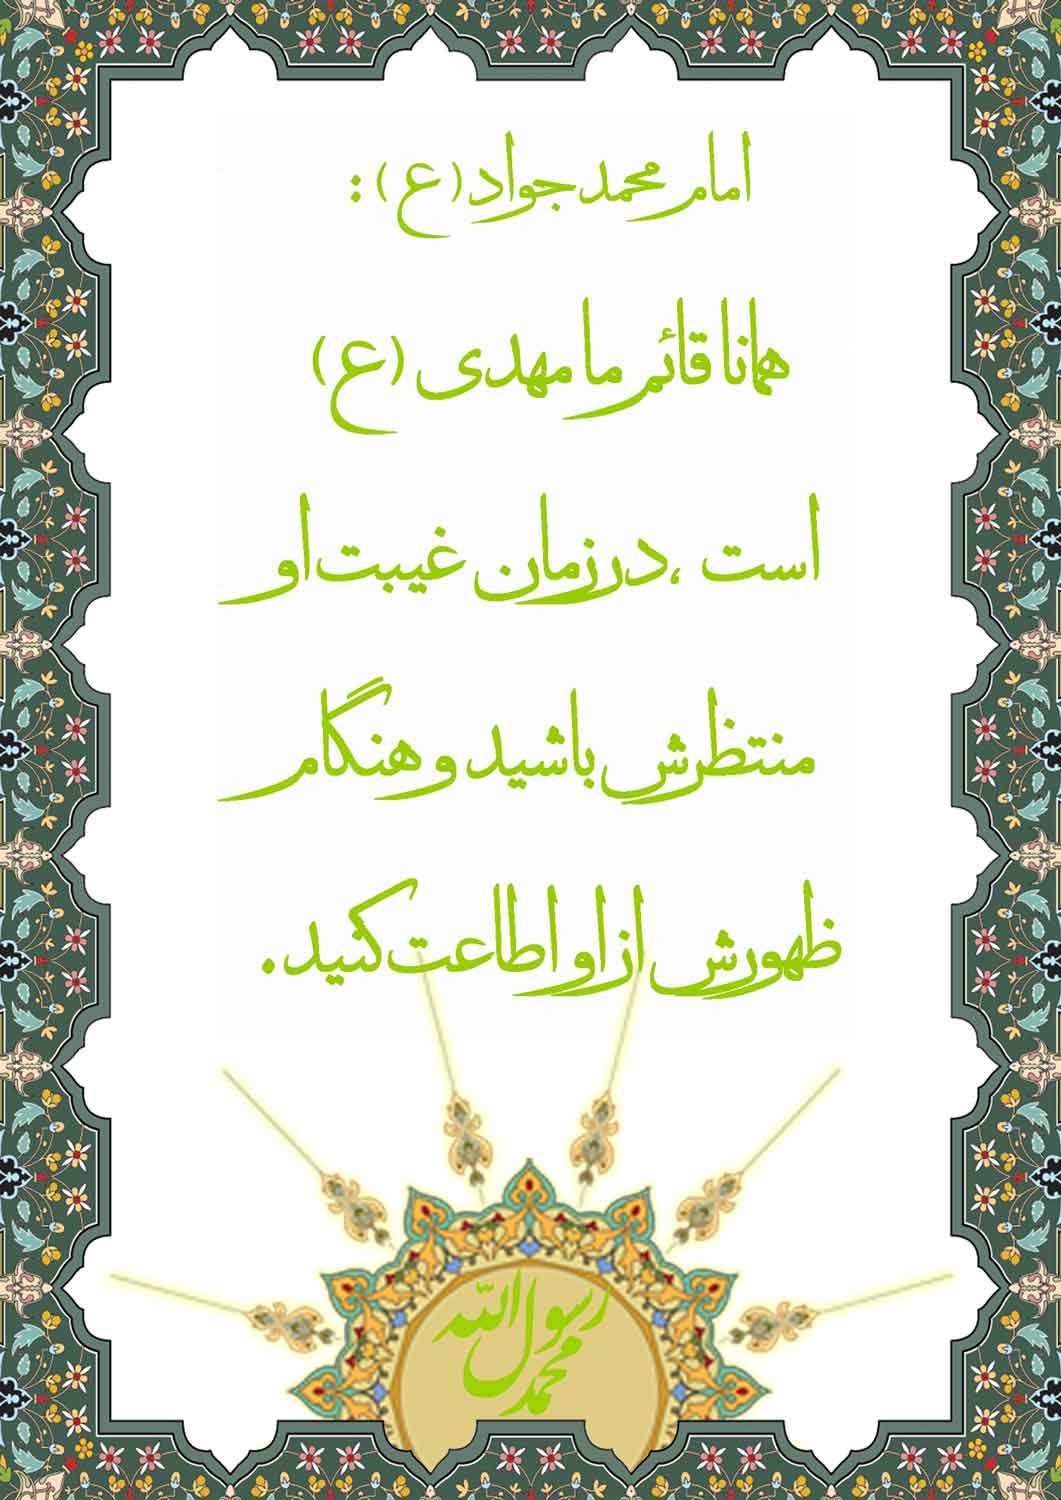 امام محمد جواد (ع) :
همانا قائم ما مهدی (ع)
است ،در زمان غیبت او
منتظرش باشید و هنگام
ظهورش از او اطاعت کنید.
محمد رسول الله